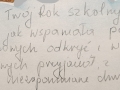 Twój rok szkolny
jak wspaniała po
nych odkryć i w
nych przyjaźń, z
niezapomniane chw